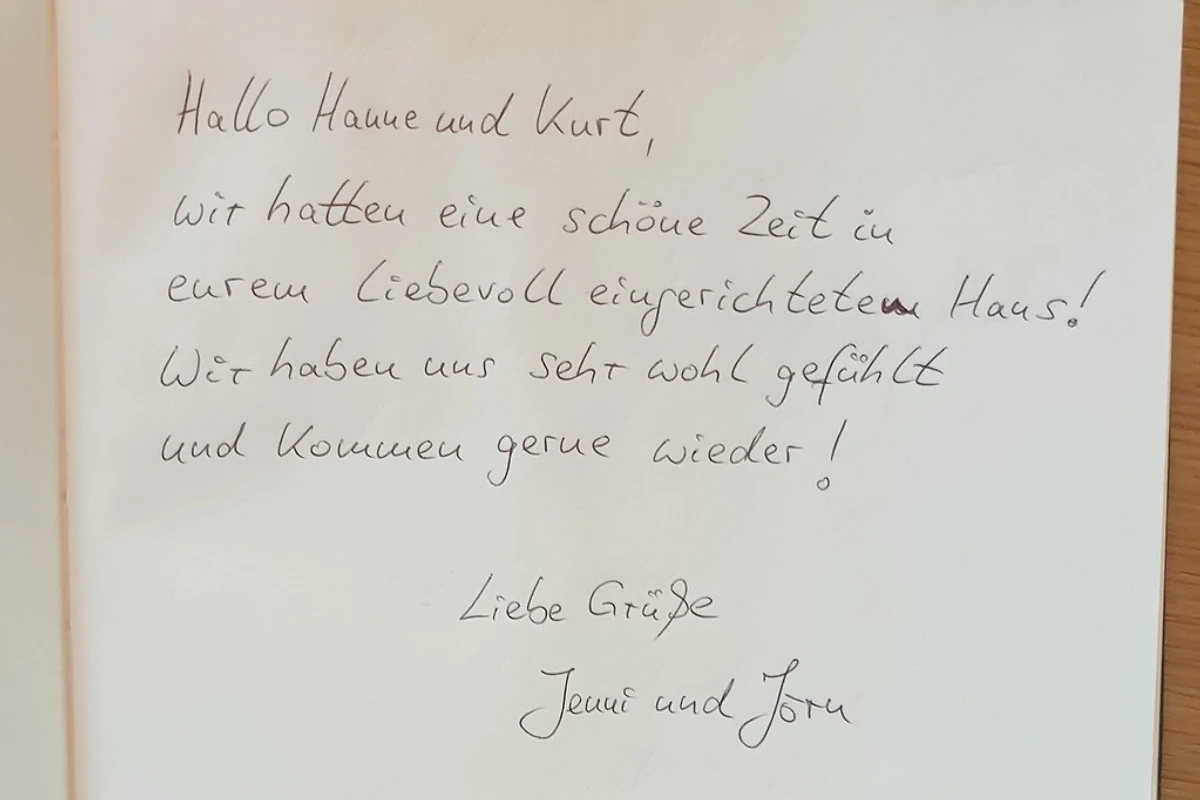 Hallo Hanne und Kurt,
wir hatten eine schöne Zeit in
eurem liebevoll eingerichteten Haus!
Wir haben uns sehr wohl gefühlt
und kommen gerne wieder!
Liebe Grüße
Jenni und Jörn